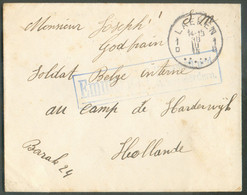 Monsieur Joseph
Godhain
Soldat Belge interné
au Camp de Harderwyk
Hollande
Barak 24
LAEKEN